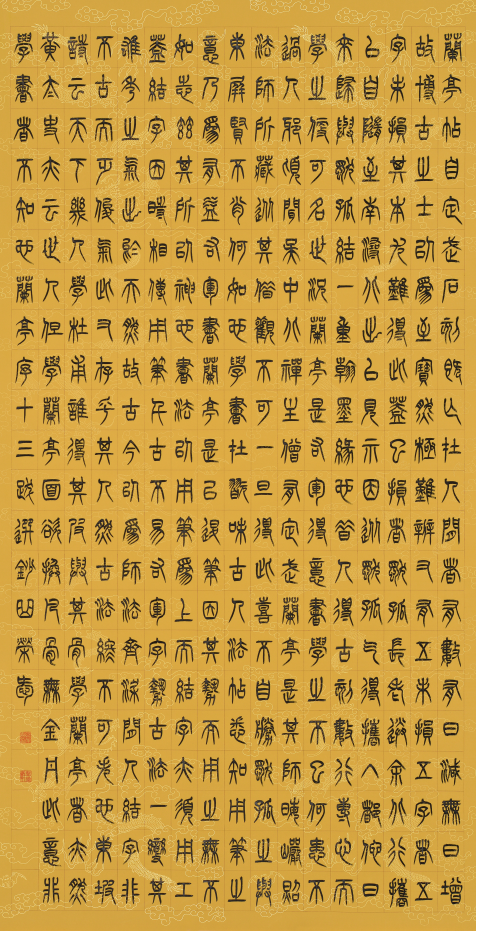 蘭亭帖自定武石刻既亡在人間者有數有日減無日增
故博古之士以爲至寶然極難辨又有五未損五字者五
字未損其本尤難得此蓋已損者獨孤長老送余北行攜
以自隨至南潯北出以見示因從獨孤乞得攜入都他日
來歸與獨孤結一重翰墨緣也昔人得古刻數行專心而
學之便可名世況蘭亭是右軍得意書學之不已何患不
過人邪頃聞吳中北禪主僧有定武蘭亭是其師晦巖照
法師所藏從其借觀不可一旦得此喜不自勝獨孤之與
東屏賢不肖何如也學書在玩味古人法帖悉知用筆之
意乃爲有益右軍書蘭亭是已退筆因其勢而用之無不
如志茲其所以神也書法以用筆爲上而結字亦須用工
蓋結字因時相傳用筆千古不易右軍字勢古法一變其
雄秀之氣出於天然故古今以爲師法齊梁間人結字非
不古而乏俊氣此又存乎其人然古法終不可失也東坡
詩云天下幾人學杜甫誰得其皮與其骨學蘭亭者亦然
黃太史亦云世人但學蘭亭面欲換凡骨無金丹此意非
學書者不知也蘭亭序十三跋選鈔